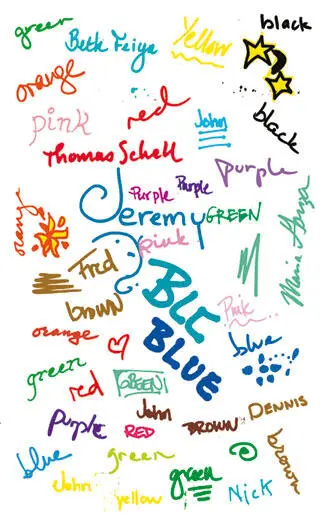 green
Beth Feiya
Yellow
black
orange
pink
red
John
black
Thomas Schell
purple
Jeremy
Purple
Purple
GREEN
orange
pink
Maria Garza
Fred
BLC
BLUE
brown
Pink
orange
blue
green
red
GREEN!
John
DENNIS
Purple
RED
BROWN
blue
green
brown
John
yellow
green
Nick